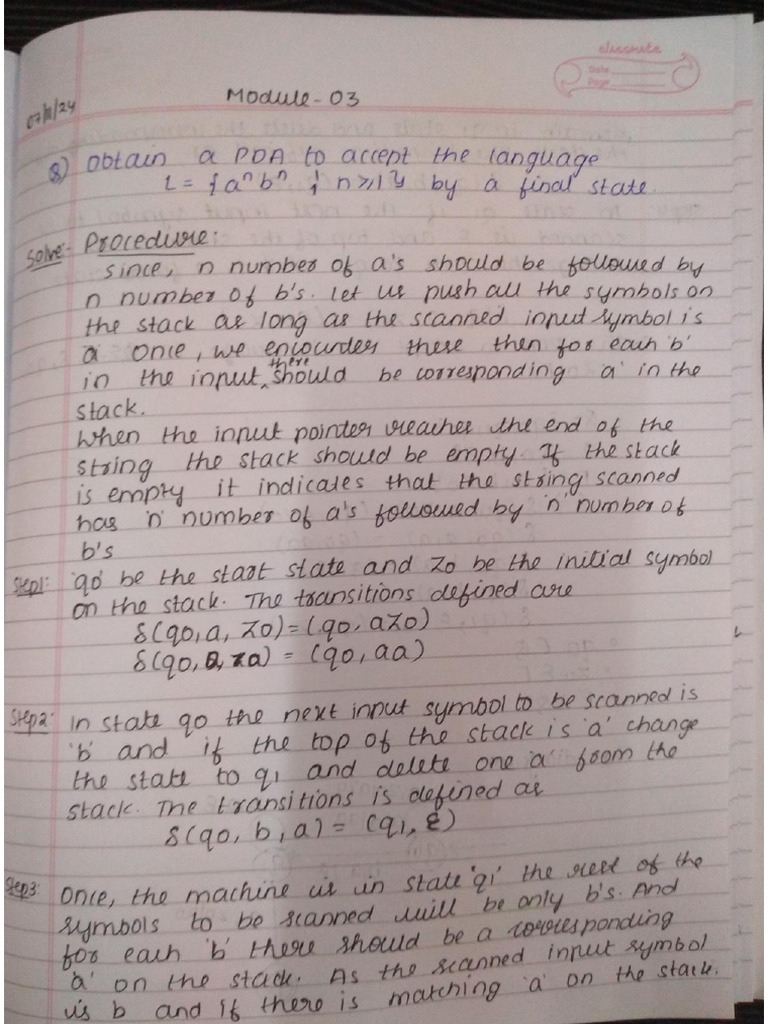 classmate
Date
Page
07/11/24
Module-03
8) Obtain a PDA to accept the language
L = {a^n b^n ¦ n≥1} by a final state.
Solve:- Procedure:
Since, n number of a's should be followed by
n number of b's. let us push all the symbols on
the stack as long as the scanned input symbol is
a once, we encounder these then for each 'b'
in the input, there should be corresponding 'a' in the
stack.
When the input pointer reaches the end of the
string the stack should be empty. If the stack
is empty it indicates that the string scanned
has 'n' number of a's followed by 'n' number of
b's
Step1: 'q0 be the start state and Z0 be the initial symbol
on the stack. The transitions defined are
δ(q0, a, Z0) = (q0, aZ0)
δ(q0, a, a) = (q0, aa)
Step2: In state q0 the next input symbol to be scanned is
'b' and if the top of the stack is 'a' change
the state to q1 and delete one 'a' from the
stack. The transitions is defined as
δ(q0, b, a) = (q1, ε)
Step3: Once, the machine is in state 'q1' the rest of the
symbols to be scanned will be only b's. And
for each 'b' there should be a corresponding
'a' on the stack. As the scanned input symbol
is b and if there is matching 'a' on the stack.